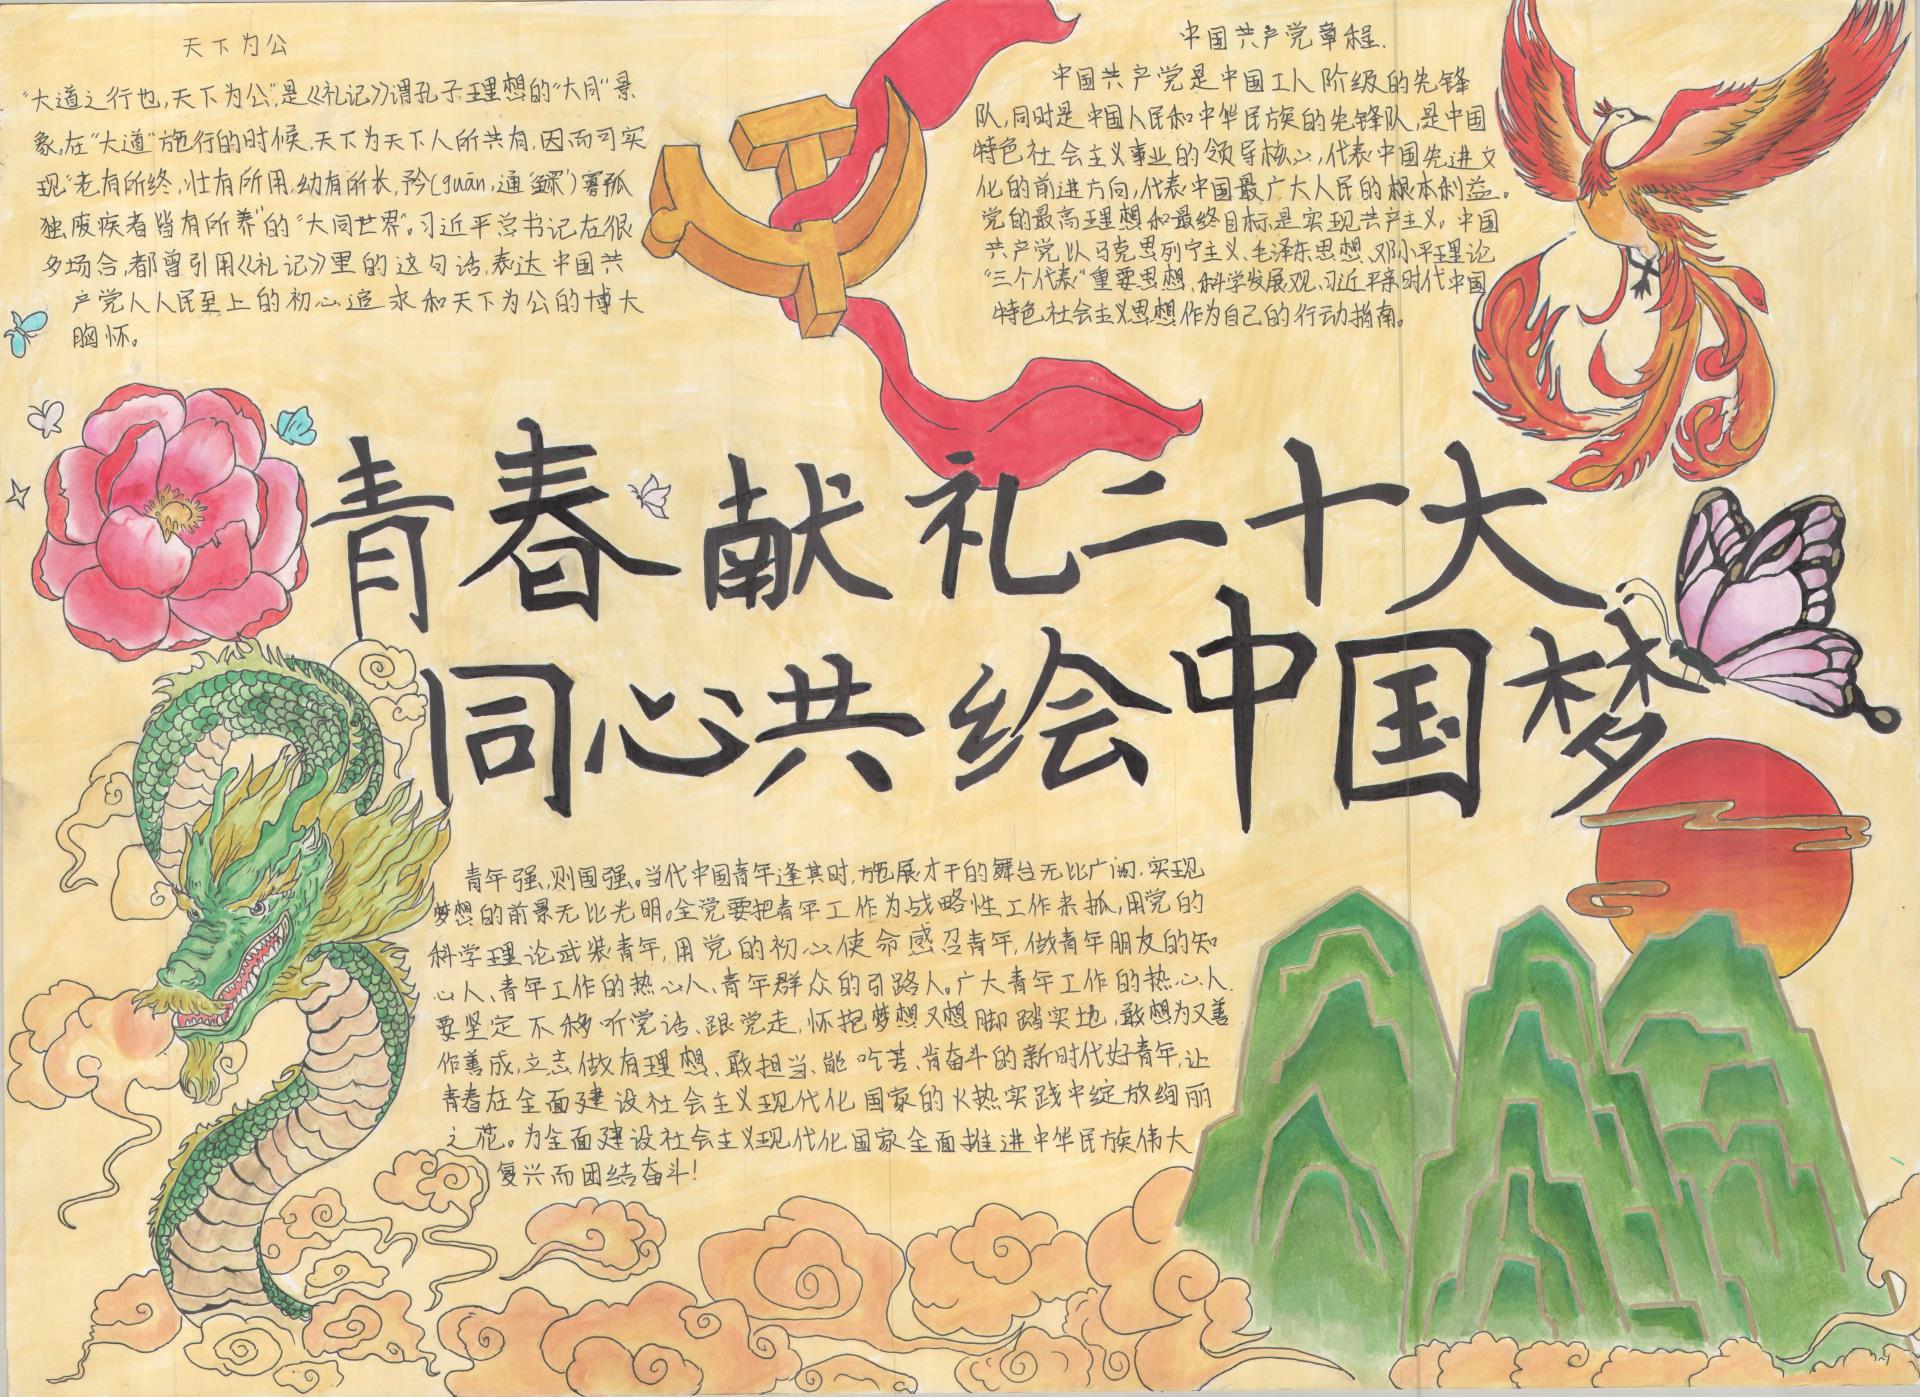 天下为公
“大道之行也,天下为公”,是《礼记》谓孔子理想的“大同”景
象,在“大道”施行的时候,天下为天下人所共有,因而可实
现“老有所终,壮有所用,幼有所长,矜(guān,通“鳏”)寡孤
独废疾者皆有所养”的“大同世界”。习近平总书记在很
多场合,都曾引用《礼记》里的这句话,表达中国共
产党人人民至上的初心追求和天下为公的博大
胸怀。
中国共产党章程.
中国共产党是中国工人阶级的先锋
队,同时是中国人民和中华民族的先锋队,是中国
特色社会主义事业的领导核心,代表中国先进文
化的前进方向,代表中国最广大人民的根本利益。
党的最高理想和最终目标是实现共产主义。中国
共产党以马克思列宁主义、毛泽东思想、邓小平理论
“三个代表”重要思想、科学发展观、习近平新时代中国
特色社会主义思想作为自己的行动指南。
青春献礼二十大
同心共绘中国梦
青年强,则国强。当代中国青年逢其时,施展才干的舞台无比广阔,实现
梦想的前景无比光明。全党要把青年工作为战略性工作来抓,用党的
科学理论武装青年,用党的初心使命感召青年,做青年朋友的知
心人、青年工作的热心人、青年群众的引路人。广大青年工作的热心人.
要坚定不移听党话、跟党走,怀抱梦想又想脚踏实地,敢想为又善
作善成,立志做有理想、敢担当、能吃苦、肯奋斗的新时代好青年,让
青春在全面建设社会主义现代化国家的火热实践中绽放绚丽
之花。为全面建设社会主义现代化国家全面推进中华民族伟大
复兴而团结奋斗!